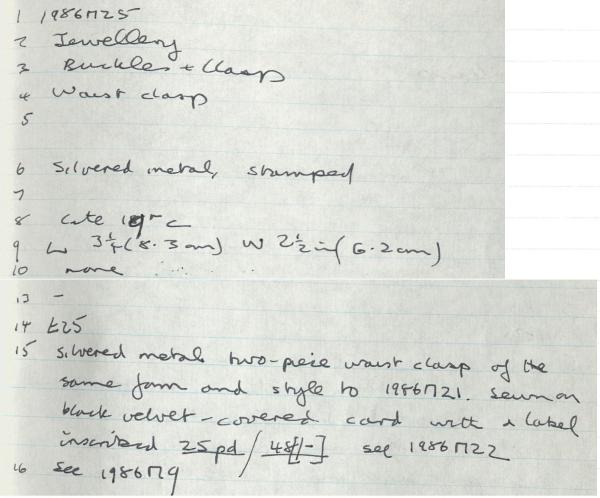 1 1986M25
2 Jewellery
3 Buckles + Clasp
4 Waist clasp
5
6 Silvered metal, stamped
7
8 Late 19th C
9 L 3 1/4 (8.3 cm) W 2 1/2 in (6.2cm)
10 none
13 -
14 £25
15 Silvered metal two-piece waist clasp of the
same form and style to 1986M21. Sewn on
black velvet-covered card with a label
inscribed 25pd / 48[/-] see 1986M22
16 See 1986M9